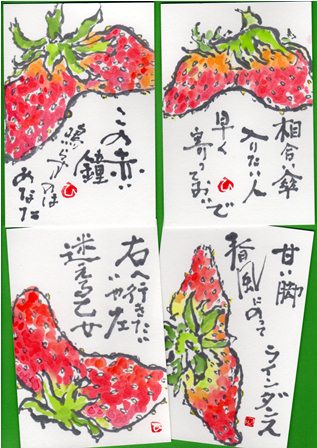 この赤い
鐘
鳴らすのは
あなた
相合い傘
入りたい人
早く
寄っておいで
右へ行きたい
いや左
迷える乙女
甘い脚
春風にのって
ラインダンス